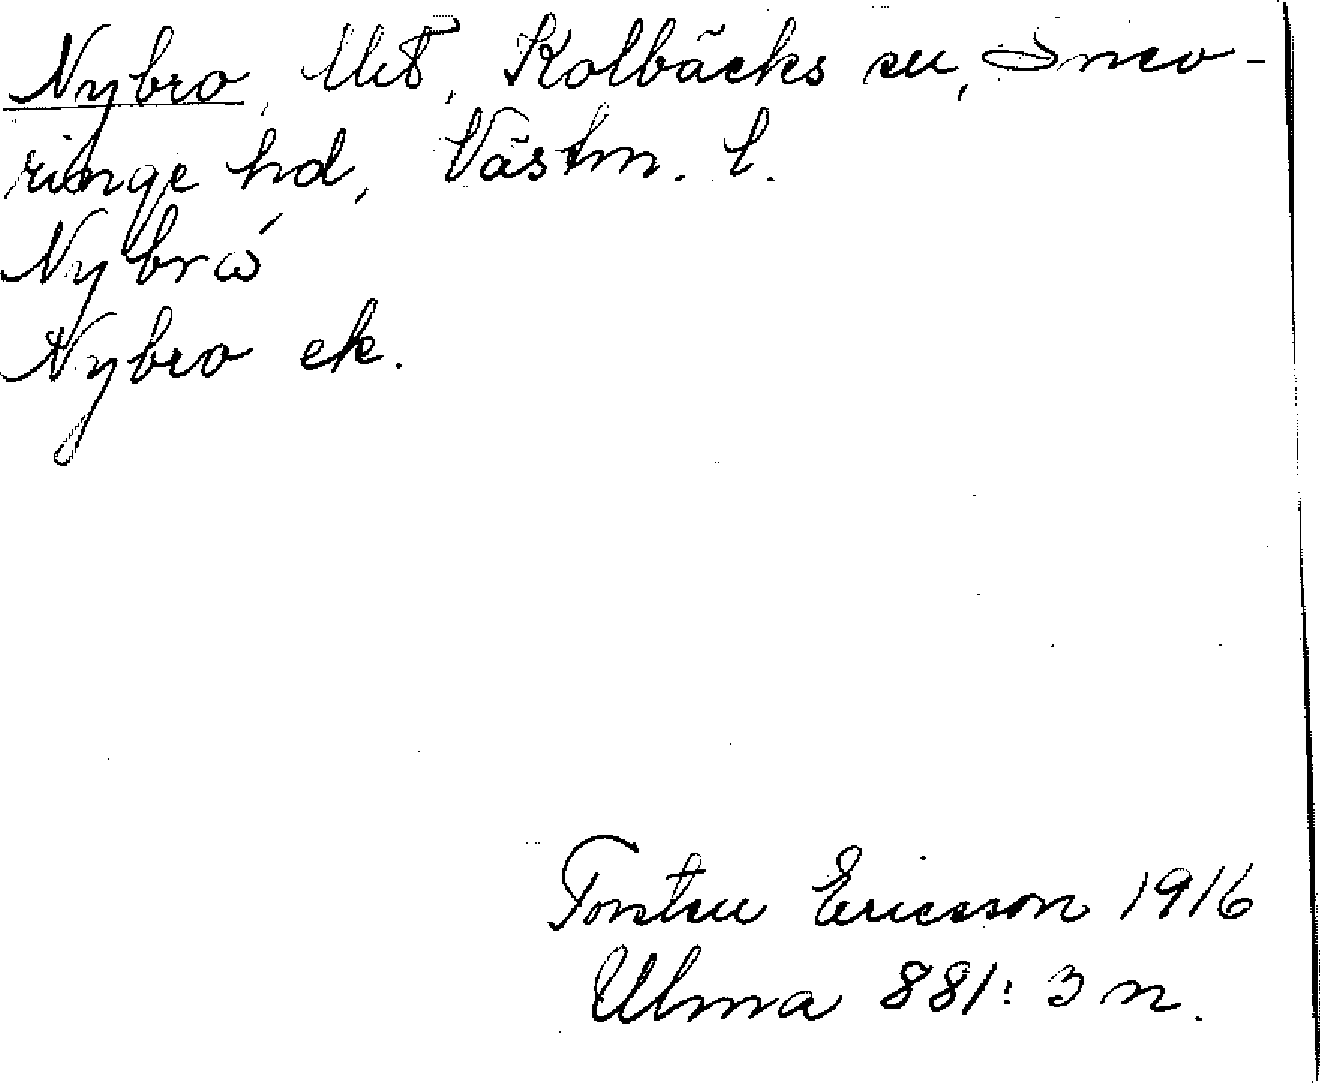 Nybro, Uts, Kolbäcks sn, Snev-
ringe hd, Västm. l.
Nybrω´
Nybro ek.
Torsten Ericsson 1916
Ulma 881:3 n.